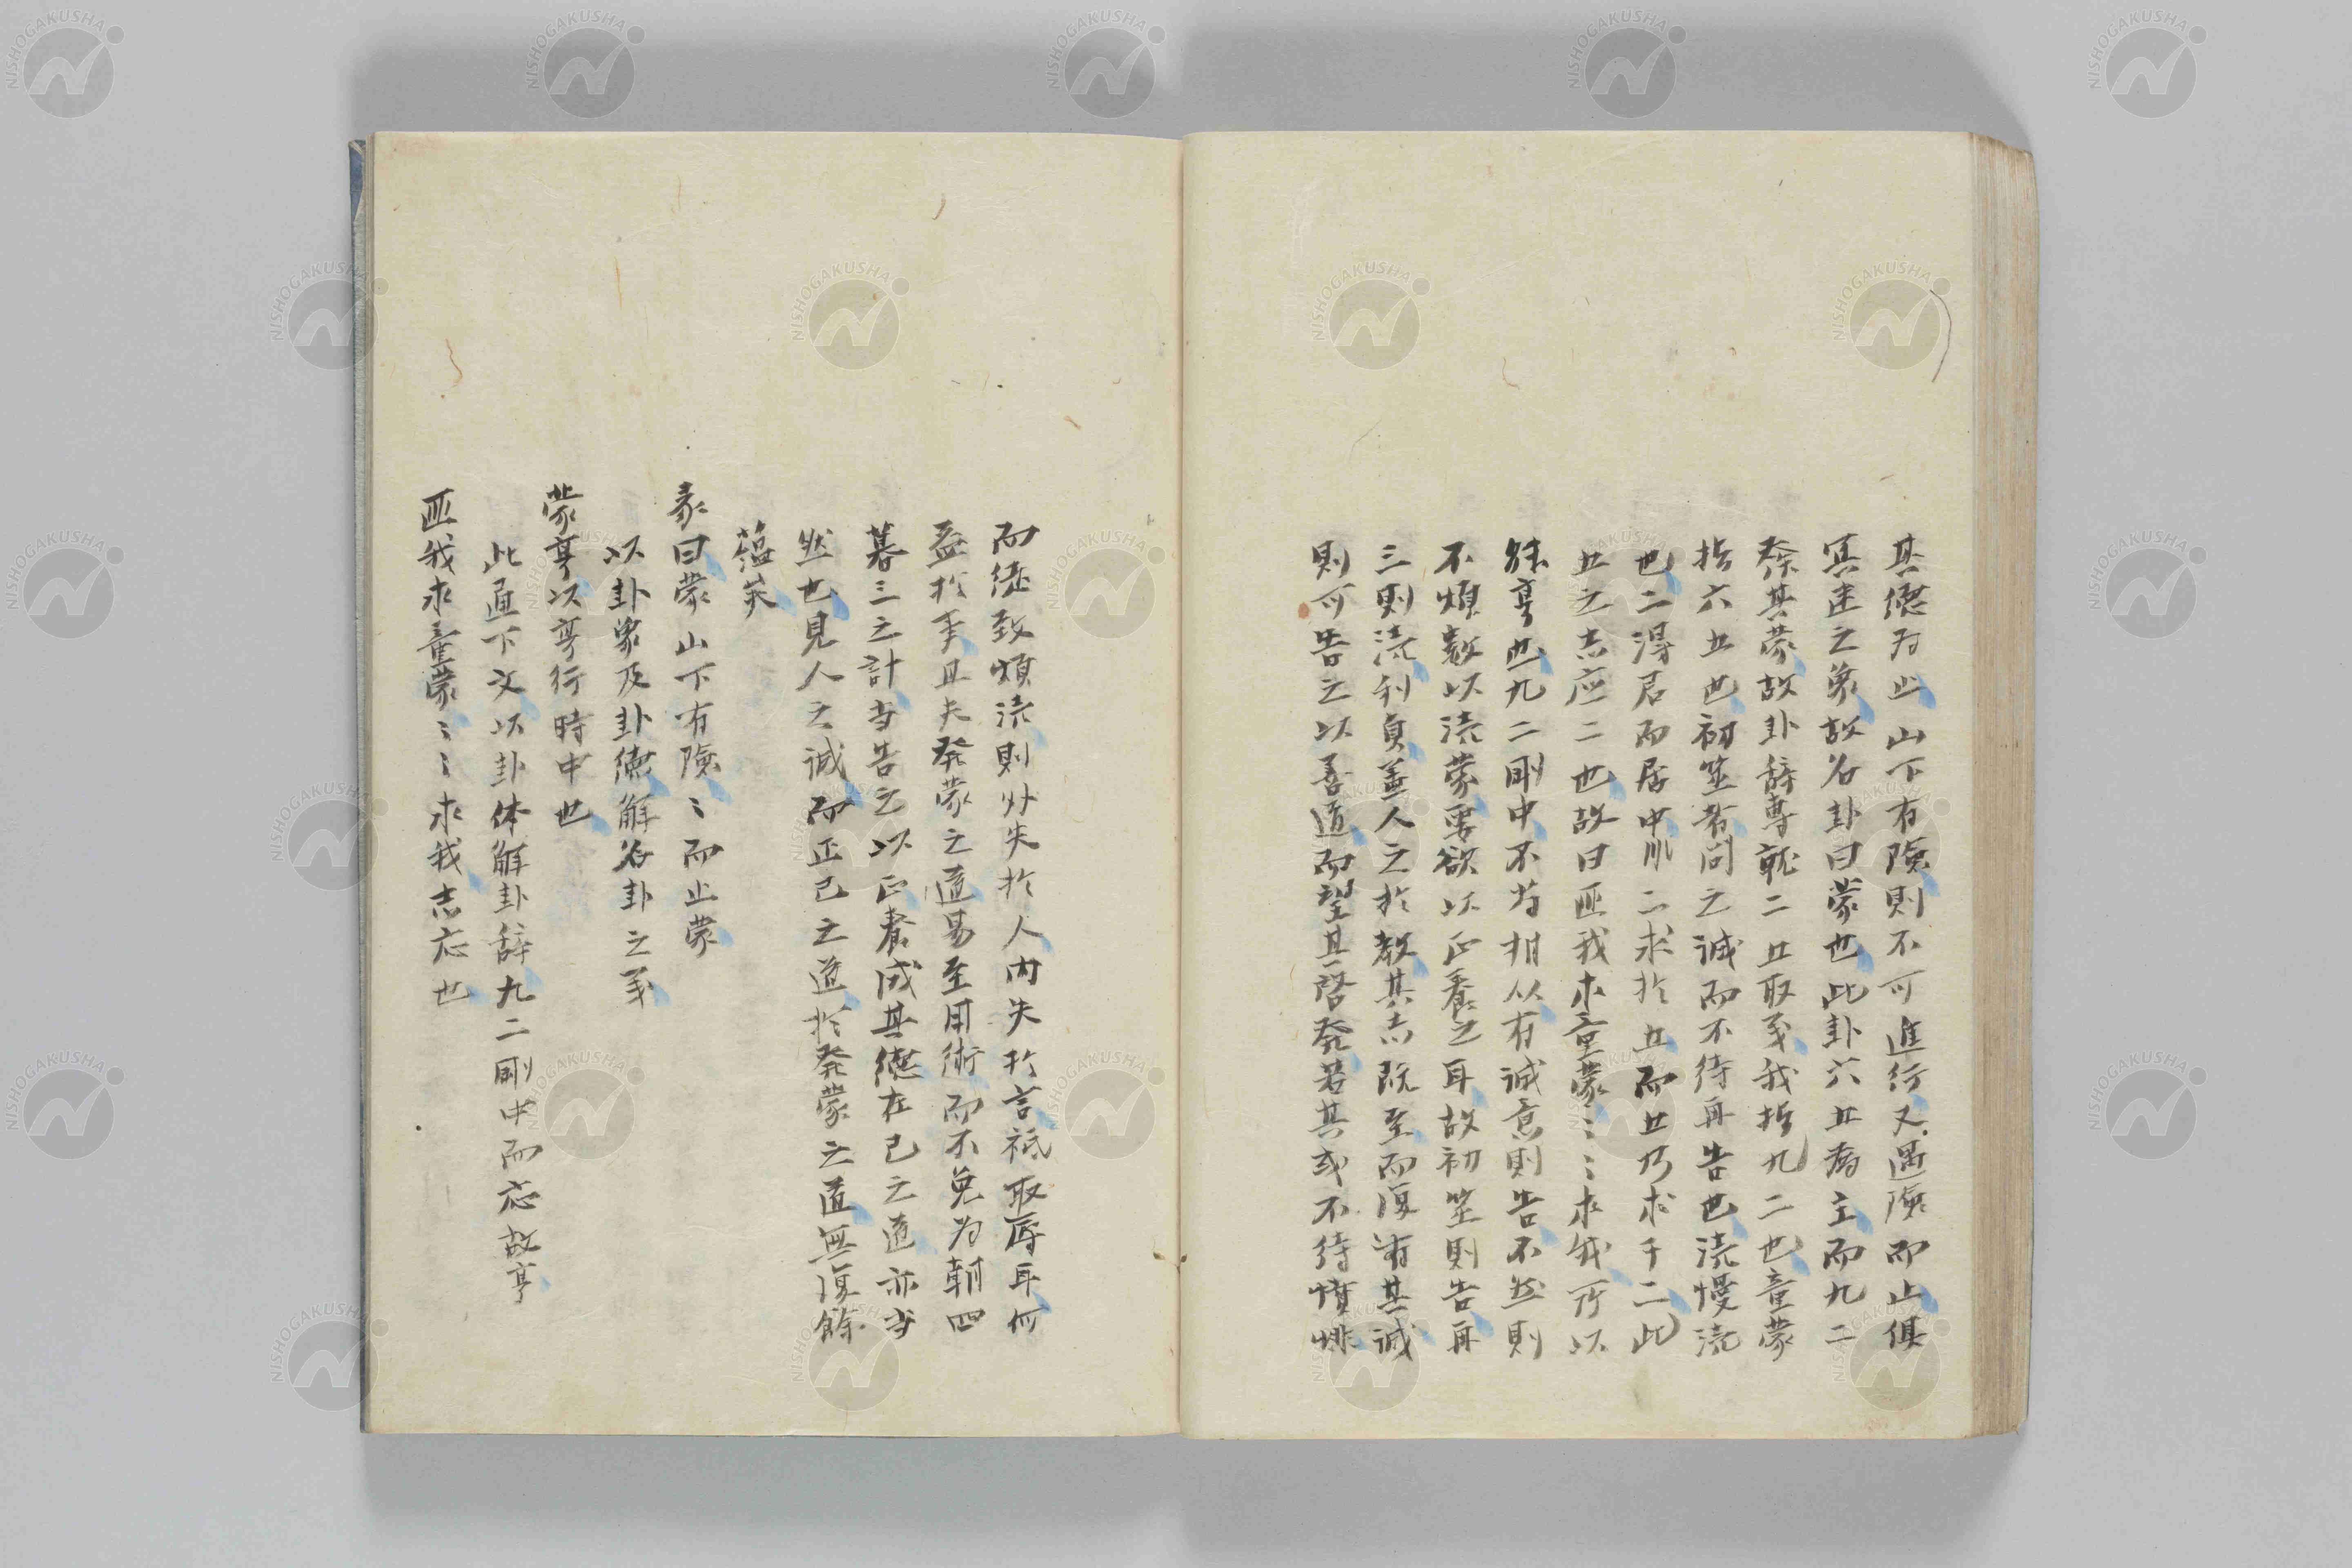 其徳为止山下有險則不可進行又遇險而止俱
冥迷之象故名卦曰蒙也此卦六五為主而九二
發其蒙故卦辞専就二五取义我指九二也童蒙
指六五也初筮者問之誠而不待再告也瀆慢瀆
也二得君而居中非二求於五而五乃求于二此
五之志应二也故曰匪我求童蒙〻〻求我所以
能亨也九二剛中不苟相从有誠意則告不然則
不煩数以瀆蒙要欲以正養之耳故初筮則告再
三則瀆利貞蓋人之於教其志既至而復有其誠
則可告之以善道而望其啓発若其或不待憤悱
而徒致煩瀆則外失於人内失於言祗取辱耳何
益於事且夫発蒙之道易至用術而不免为朝四
暮三之計当告之以正養成其徳在己之道亦当
然也見人之誠而正己之道於発蒙之道無復餘
蕴矣
彖曰蒙山下有險〻而止蒙
以卦象及卦徳解名卦之义
蒙亨以亨行時中也
此直下文以卦体解卦辞九二剛中而应故亨
匪我求童蒙〻〻求我志应也
NISHOGAKUSHA